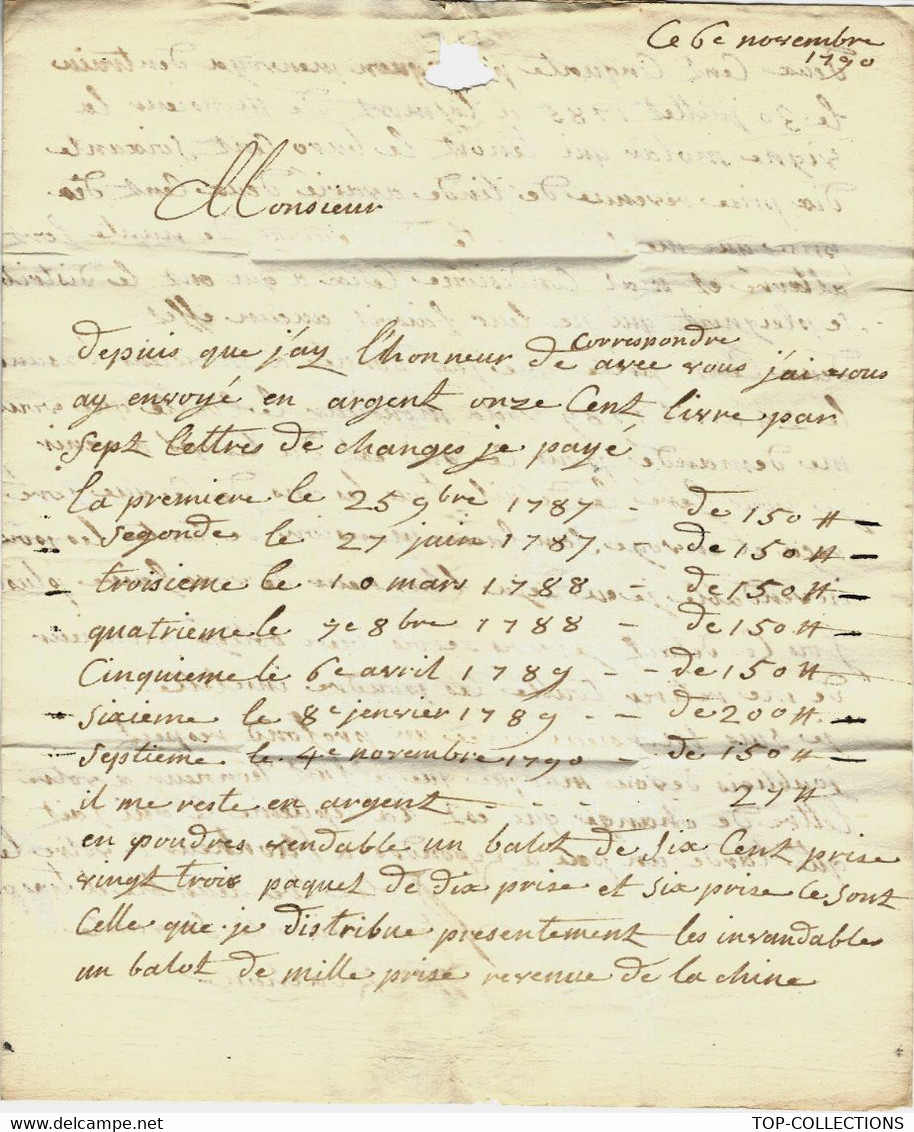 Ce 6e novembre
1790
Monsieur
depuis que j'ay l'honneur de correspondre avec vous j'ai vous
ay envoyé en argent onze Cent livre par
Sept lettres de changes je payé
la premiere le 25 9bre 1787 - de 150 ₶ -
" Segonde le 27 juin 1787 - de 150 ₶ -
- troisieme le 10 mars 1788 - de 150 ₶ -
" quatrieme le 7e 8bre 1788 - de 150 ₶
Cinquieme le 6e avril 1789 - - de 150 ₶
- Sixieme le 8e jenvier 1789 - - de 200 ₶ -
- Septieme le 4e novembre 1790 - de 150 ₶ -
il me reste en argent - - - - 27 ₶
en poudres vendable un balot de Six Cent prise
vingt trois paquet de dix prise et Six prise ce sont
Celle que je distribue presentement les invandables
un balot de mille prise revenue de la chine
TOP-COLLECTIONS